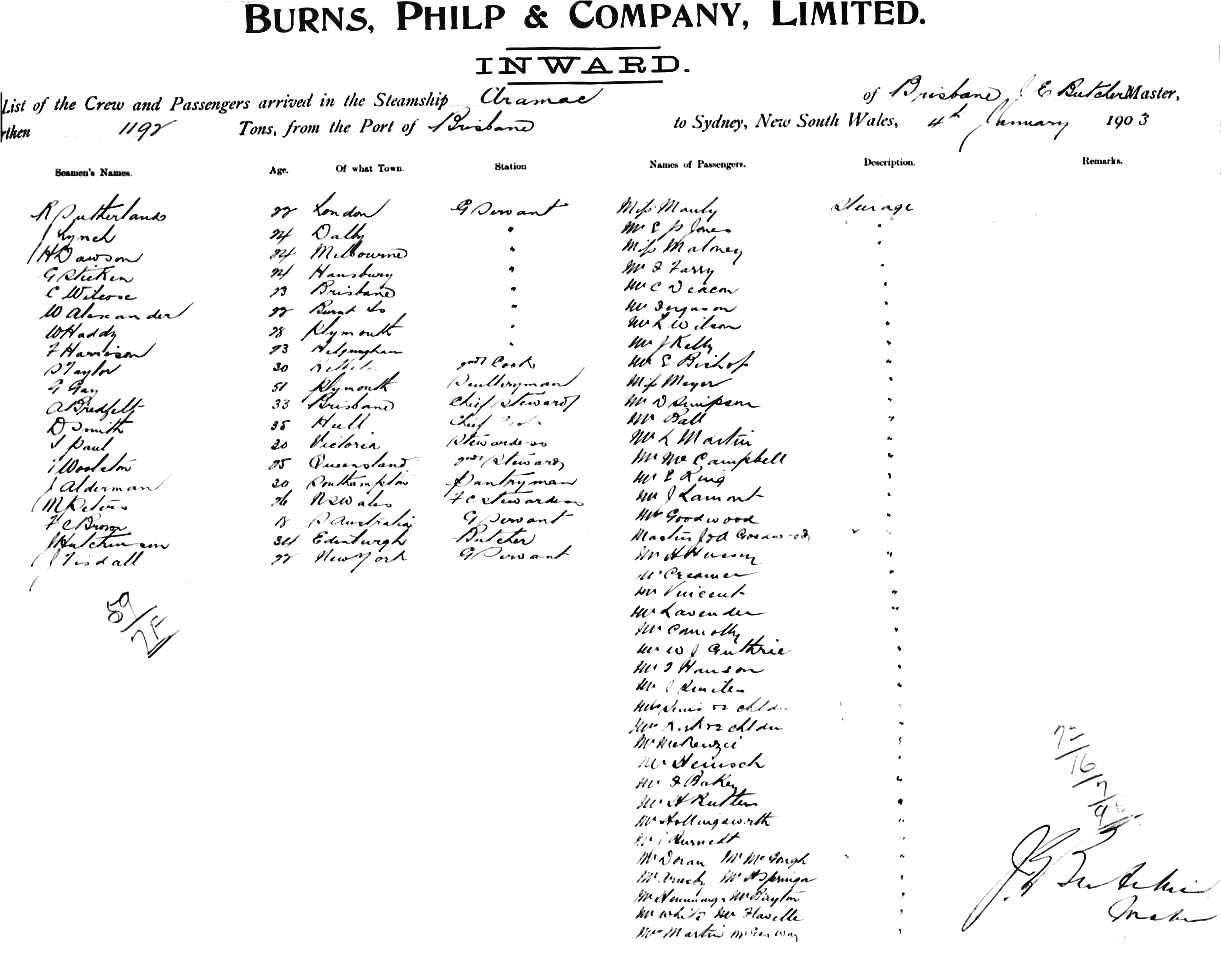 BURNS, PHILP & COMPANY, LIMITED.
INWARD.
List of the Crew and Passengers arrived in the Steamship Aramac of Brisbane J E Butcher Master,
then 1192 Tons, from the Port of Brisbane to Sydney, New South Wales, 4th January 1903
Seamen's Names. Age. Of what Town. Station Names of Passengers. Description. Remarks.
R Sutherland 22 London G Servant Miss Manly Steerage
J Lynch 24 Dalby " Mr E P Jones "
H Dawson 24 Melbourne " Miss Maloney "
G 24 Hansbury " Mr F Farry "
C Wilcose 23 Brisbane " Mr C Deacon "
W Alexander 22 " Mr Ferguson "
W Haddy 28 Plymouth " Mr L Wilson "
F Harrison 23 " Mr J Kelly "
S Taylor 30 2nd Cook Mr E Bishop "
G Gay 51 Plymouth Sculleryman Miss Meyer "
A Bredfelt 33 Brisbane Chief Steward Mr D Simpson "
D Smith 35 Hull Chief Mr Ball "
S Paul 20 Victoria Stewardess Mr L Martin "
Woolston 25 Queensland 2nd Steward Mr Mc Campbell "
J Alderman 20 Southampton Pantryman Mr E King "
M Peters 26 N S Wales F C Stewardess Mr J Lamont "
F C Brown 18 S Australia G Servant Mr Goodwood "
J Hutchinson 34 Edinburgh Butcher Masters J & A "
J Tisdall 22 New York G Servant Mr A Hussey "
Mr Creamer "
Mr Vincent "
Mr Lavender "
Mr Connolly "
Mr W J Guthrie "
Mr F Hanson "
Mr J "
Mrs Lewis & 2 Childn "
Mrs & 2 Childn "
Mr McKenzie "
Mr Heinsch "
Mr F Baker "
Mr A Rutter "
Mr Hollingsworth "
Mr Burnett "
Mr Doran Mr McGough "
Mr Mr H Springa "
Mr Hemmings Mr Bayton "
Mr White Mr Flavelle "
Mrs Martin "
59/
75
72/16/7/95
J E Butcher
Master